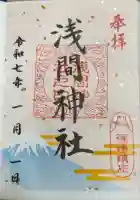 奉拝
浅間神社
令和七年
一月一日